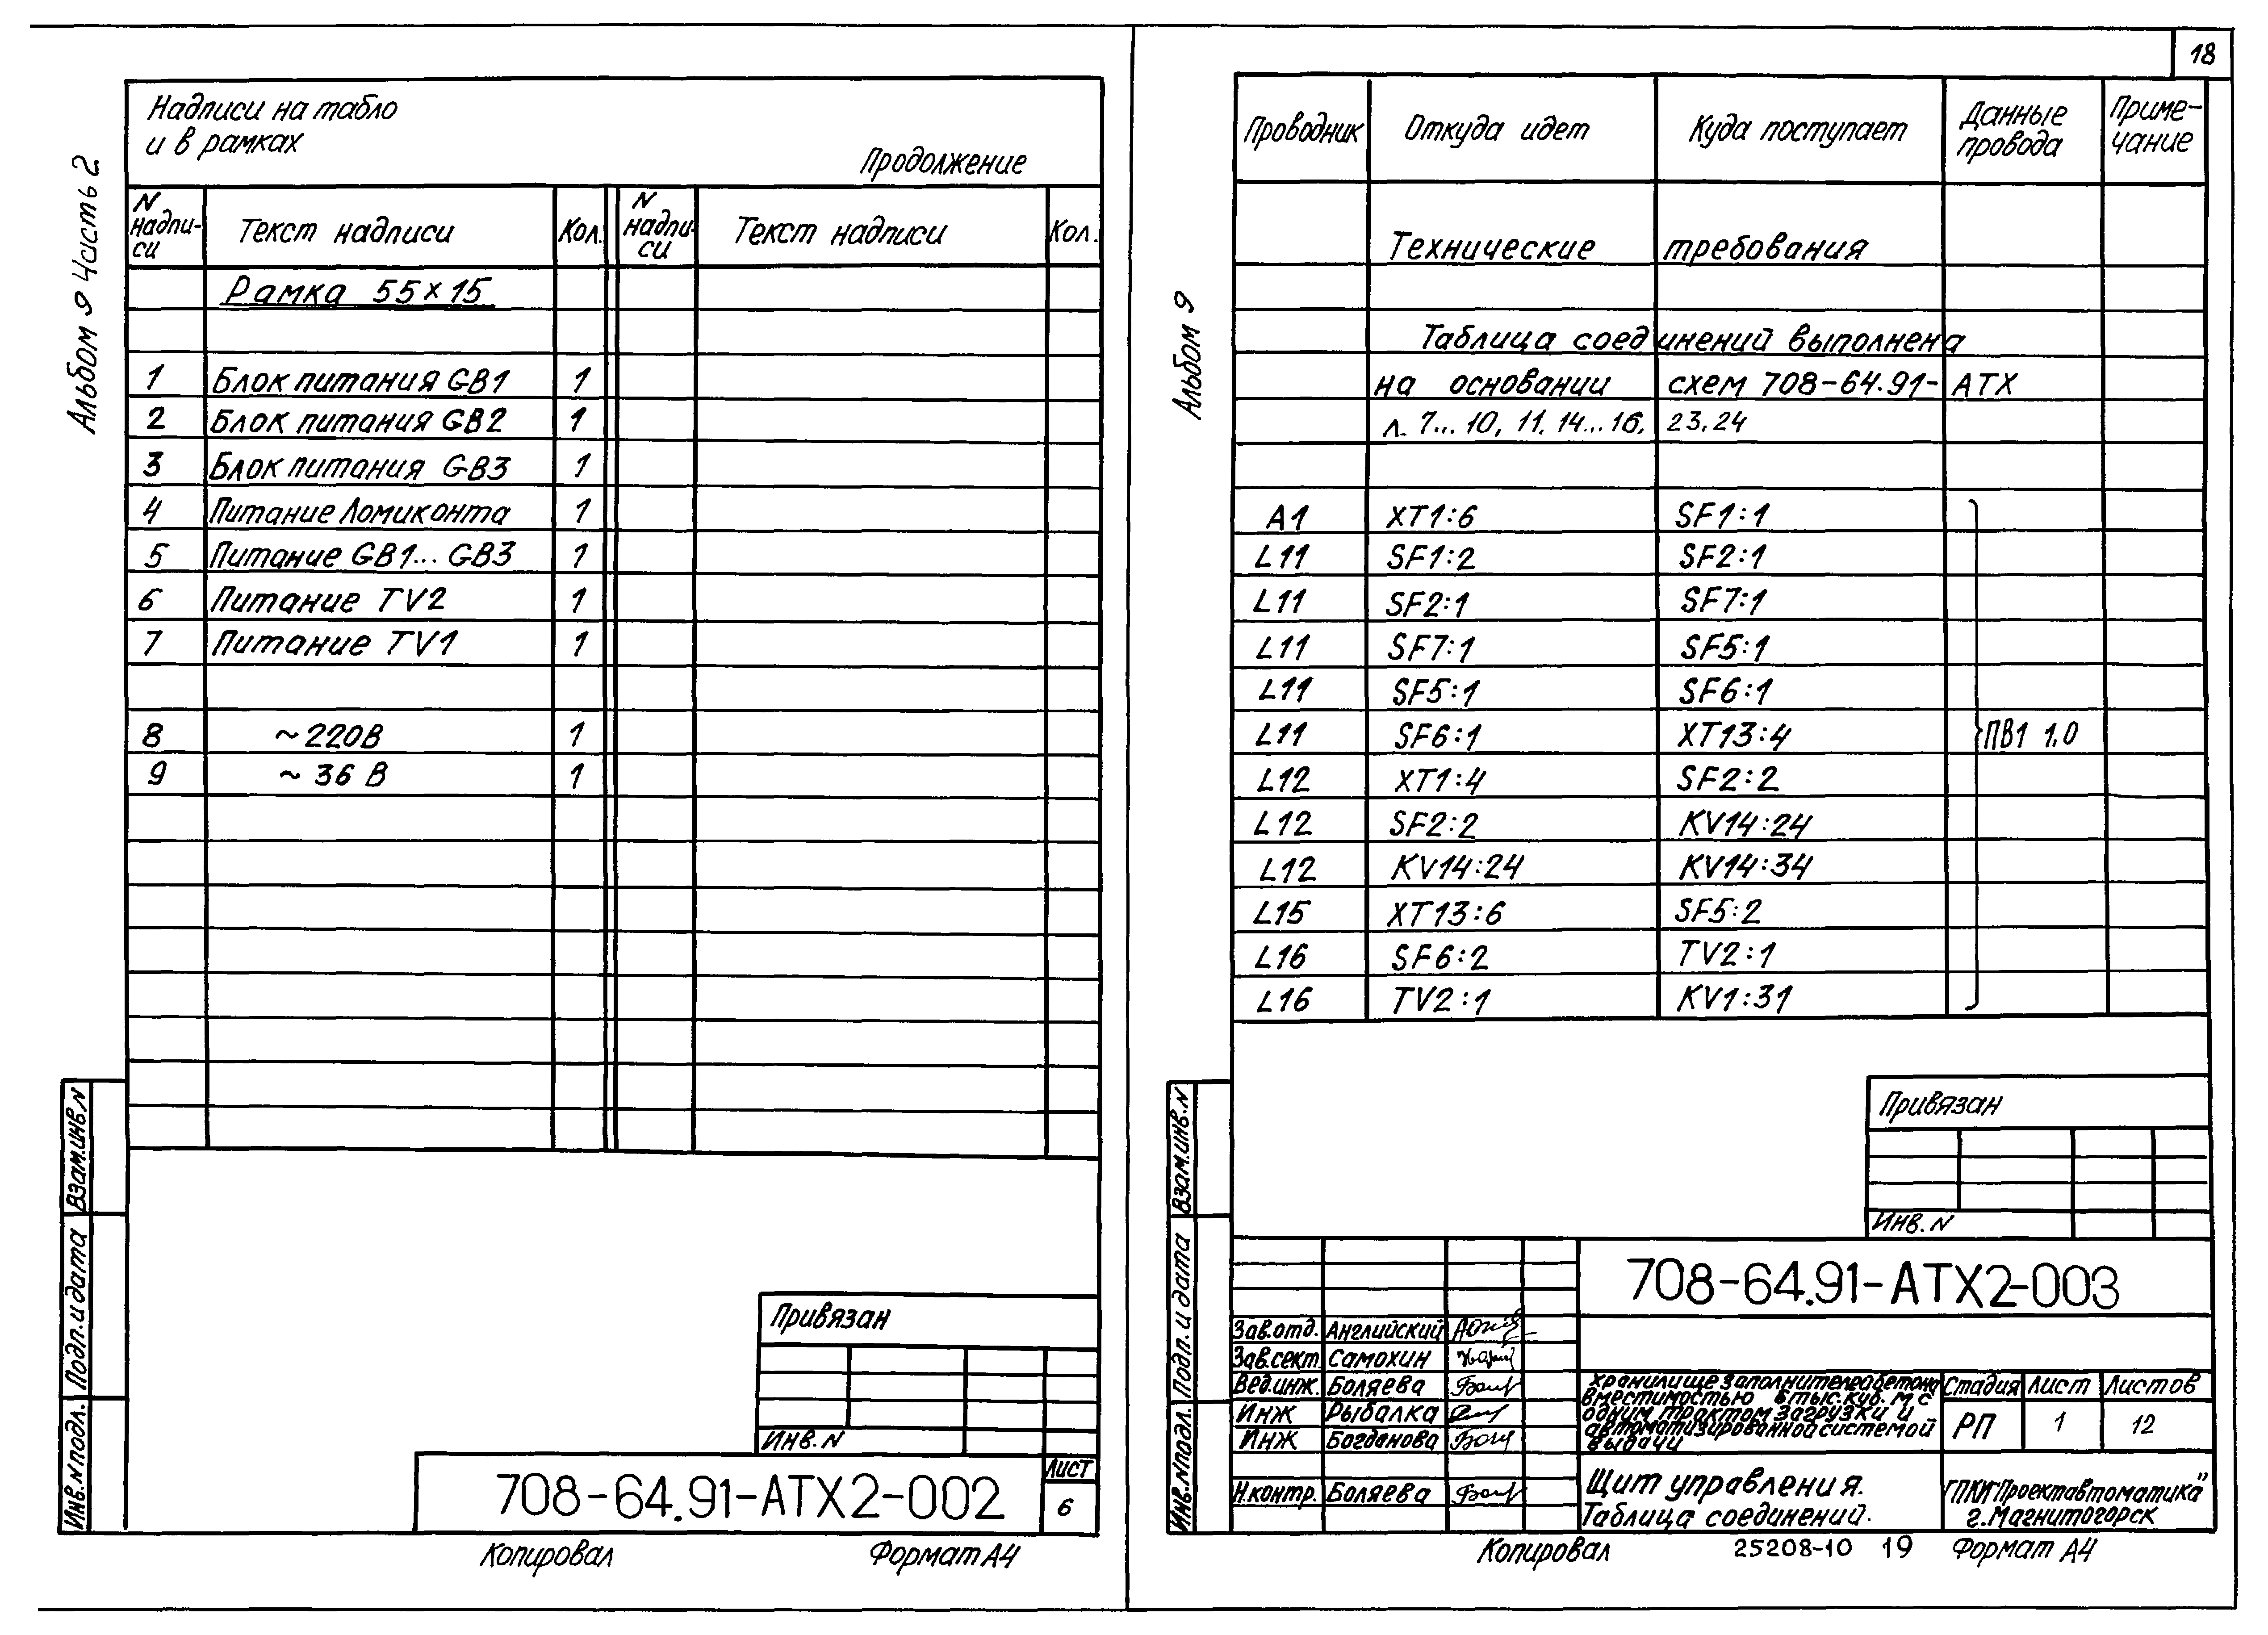 18
Альбом 9 Часть 2
Надписи на табло
и в рамках
Продолжение
N надпи-си Текст надписи Кол. N надпи-си Текст надписи Кол.
Рамка 55×15
1 Блок питания GB1 1
2 Блок питания GB2 1
3 Блок питания GB3 1
4 Питание Ломиконта 1
5 Питание GB1...GB3 1
6 Питание TV2 1
7 Питание TV1 1
8 ~220В 1
9 ~36 В 1
Взам.инв.N
Подп. и дата
Инв.N подл.
Привязан
Инв.N
708-64.91-АТХ2-002
Лист
6
Копировал Формат А4
Альбом 9
Проводник Откуда идет Куда поступает Данные провода Приме-чание
Технические требования
Таблица соединений выполнена
на основании схем 708-64.91-АТХ
л. 7...10, 11, 14...16, 23, 24
А1 XT1:6 SF1:1
L11 SF1:2 SF2:1
L11 SF2:1 SF7:1
L11 SF7:1 SF5:1
L11 SF5:1 SF6:1
L11 SF6:1 XT13:4 ПВ1 1,0
L12 XT1:4 SF2:2
L12 SF2:2 KV14:24
L12 KV14:24 KV14:34
L15 XT13:6 SF5:2
L16 SF6:2 TV2:1
L16 TV2:1 KV1:31
Взам.инв.N
Подп. и дата
Инв.N подл.
Привязан
Инв.N
708-64.91-АТХ2-003
Зав.отд. Английский
Зав.сект. Самохин
Вед.инж. Боляева
Инж Рыбалка
Инж Богданова
Н.контр. Боляева
Хранилище заполнителей бетона
вместимостью 6 тыс.куб.м с
одним трактом загрузки и
автоматизированной системой
выдачи
Стадия Лист Листов
РП 1 12
Щит управления.
Таблица соединений.
ГПКИ "Проектавтоматика"
г.Магнитогорск
Копировал 25208-10 19 Формат А4